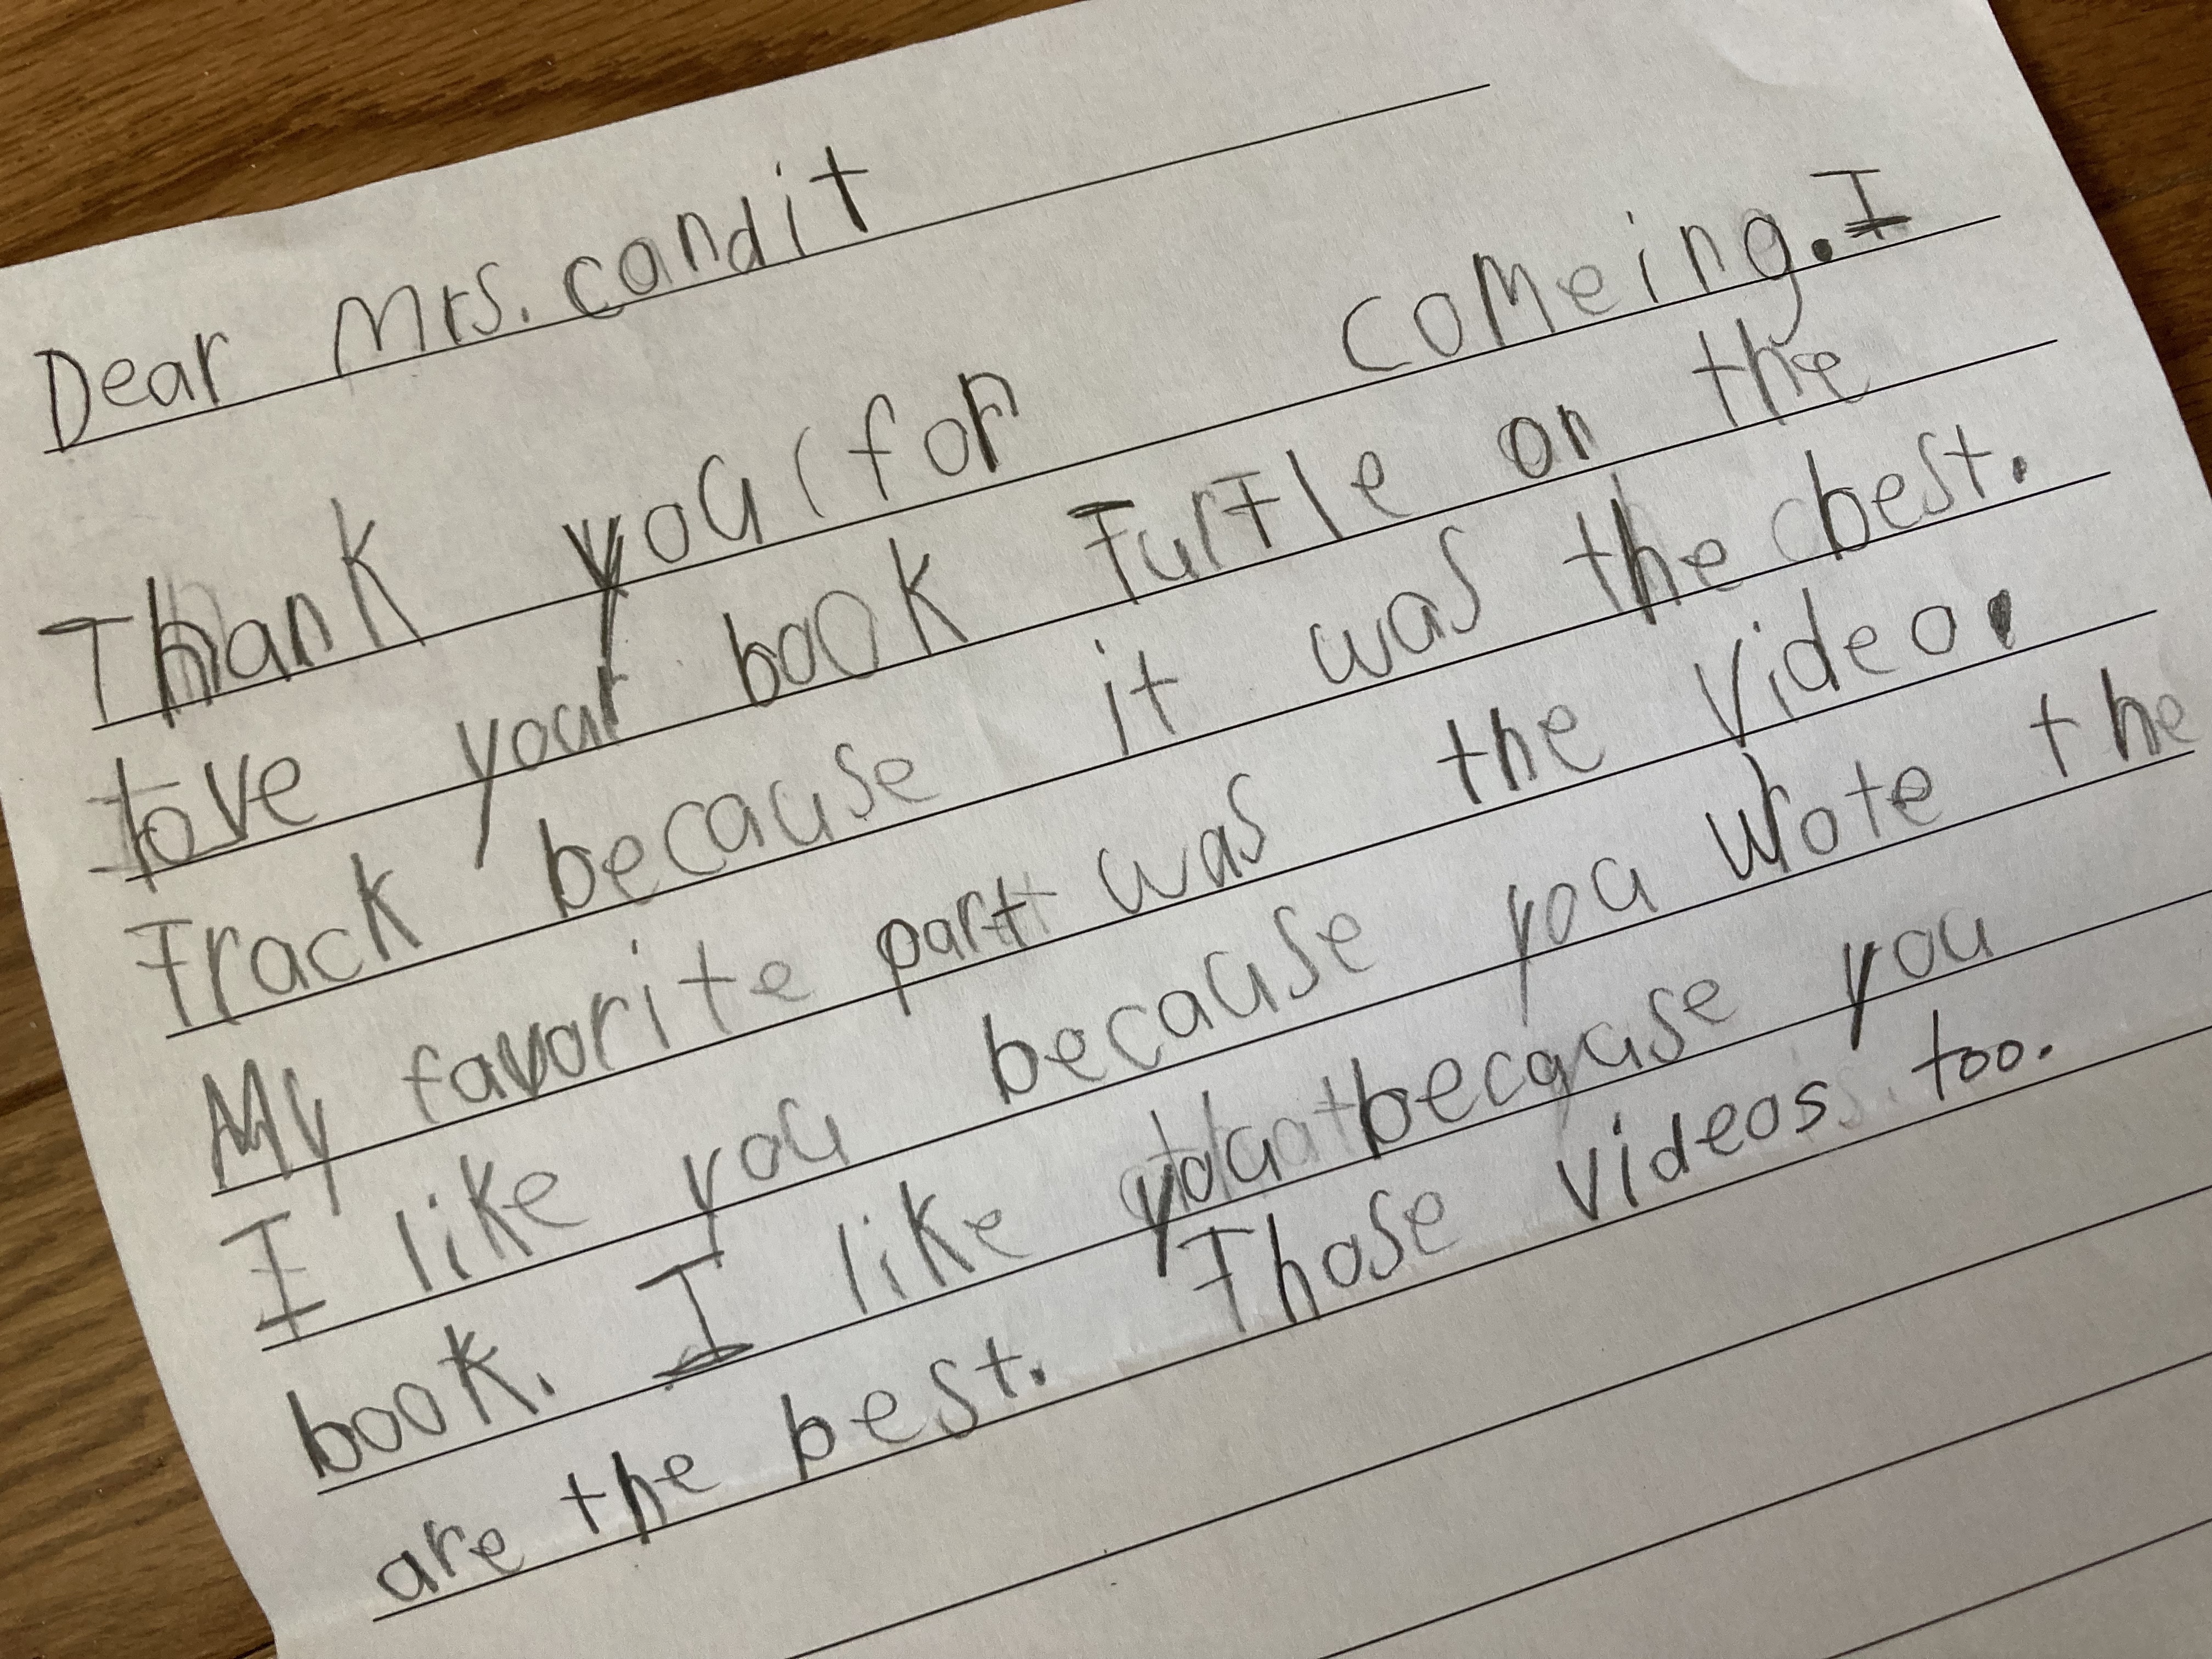 Dear Mrs. candit
Thank you for comeing. I
love your book Turtle on the
Track because it was the best.
My favorite part was the video.
I like you because you wrote the
book. I like you because you
are the best. Those videos too.